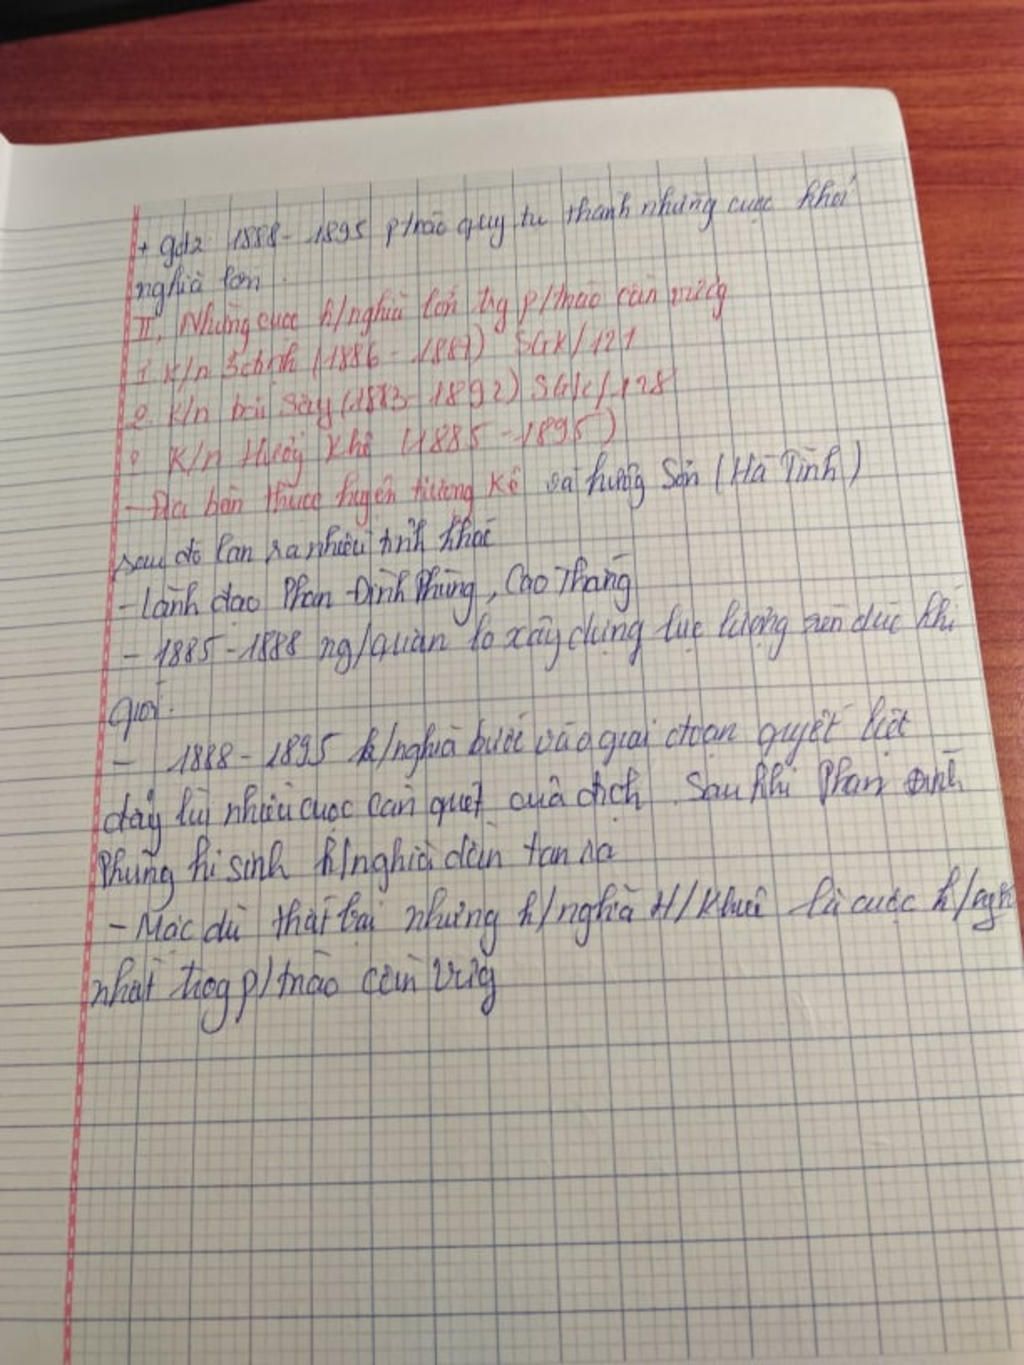 + gđ2 1888 - 1895 p/trào quy tụ thành những cuộc khởi
nghĩa lớn.
II, Những cuộc k/nghĩa lớn trg p/trào cần vương
1 K/n Ba Đình (1886 - 1887) SGK/121
2. K/n bãi Sậy (1883 - 1892) SGK/128
K/n Hương Khê (1885 - 1895)
- Địa bàn thuộc huyện Hương Kê và hương Sơn (Hà Tĩnh)
sau đó lan ra nhiều tỉnh khác
- Lãnh đạo Phan Đình Phùng, Cao Thắng
- 1885 - 1888 ng/quân lo xây dựng lực lượng rèn đúc khí
giới.
- 1888 - 1895 k/nghĩa bước vào giai đoạn quyết liệt
đẩy lùi nhiều cuộc càn quét của địch. Sau khi Phan Đình
Phùng hi sinh k/nghĩa dần tan rã
- Mặc dù thất bại nhưng k/nghĩa H/Khuê là cuộc k/ngh
nhất trog p/trào cần Vưg